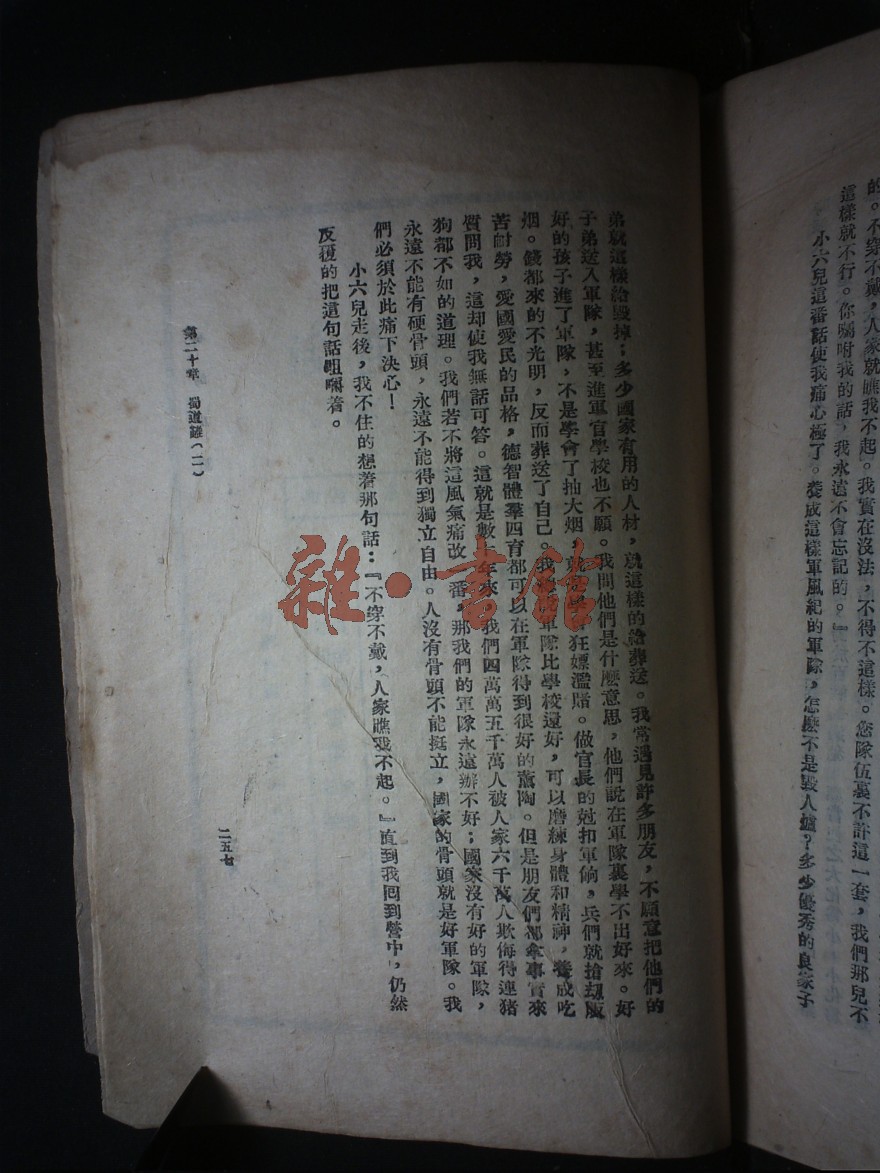 的。不穿不戴，人家就瞧我不起。我實在沒法，不得不這樣。您隊伍裏不許這一套，我們那兒不
這樣就不行。你囑咐我的話，我永遠不會忘記的。』
小六兒這番話使我痛心極了。養成這樣軍風紀的軍隊，怎麼不是毀人爐？多少優秀的良家子
弟就這樣給毀掉；多少國家有用的人材，就這樣的給葬送。我常遇見許多朋友，不願意把他們的
子弟送入軍隊，甚至進軍官學校也不願。我問他們是什麼意思，他們說在軍隊裏學不出好來。好
好的孩子進了軍隊，不是學會了抽大烟，就是學會狂嫖濫賭。做官長的尅扣軍餉，兵們就搶刼販
烟。錢都來的不光明，反而葬送了自己。我說軍隊比學校還好，可以磨練身體和精神，養成吃
苦耐勞，愛國愛民的品格，德智體羣四育都可以在軍隊得到很好的薰陶。但是朋友們都拿事實來
質問我，這却使我無話可答。這就是數十年來，我們四萬萬五千萬人被人家六千萬人欺侮得連猪
狗都不如的道理。我們若不將這風氣痛改一番，那我們的軍隊永遠辦不好；國家沒有好的軍隊，
永遠不能有硬骨頭，永遠不能得到獨立自由。人沒有骨頭不能挺立，國家的骨頭就是好軍隊。我
們必須於此痛下決心！
小六兒走後，我不住的想着那句話：『不穿不戴，人家瞧我不起。』直到我囘到營中，仍然
反復的把這句話咀嚼着。
第二十章 蜀道難（二）
二五七
雜·書館